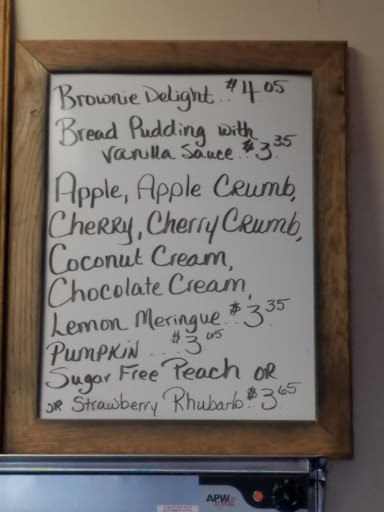 Brownie Delight.. $4.05
Bread Pudding with
Vanilla Sauce.. $3.35
Apple, Apple Crumb,
Cherry, Cherry Crumb,
Coconut Cream,
Chocolate Cream,
Lemon Meringue.. $3.35
Pumpkin ... $3.65
Sugar Free Peach or
or Strawberry Rhubarb.. $3.65
APW